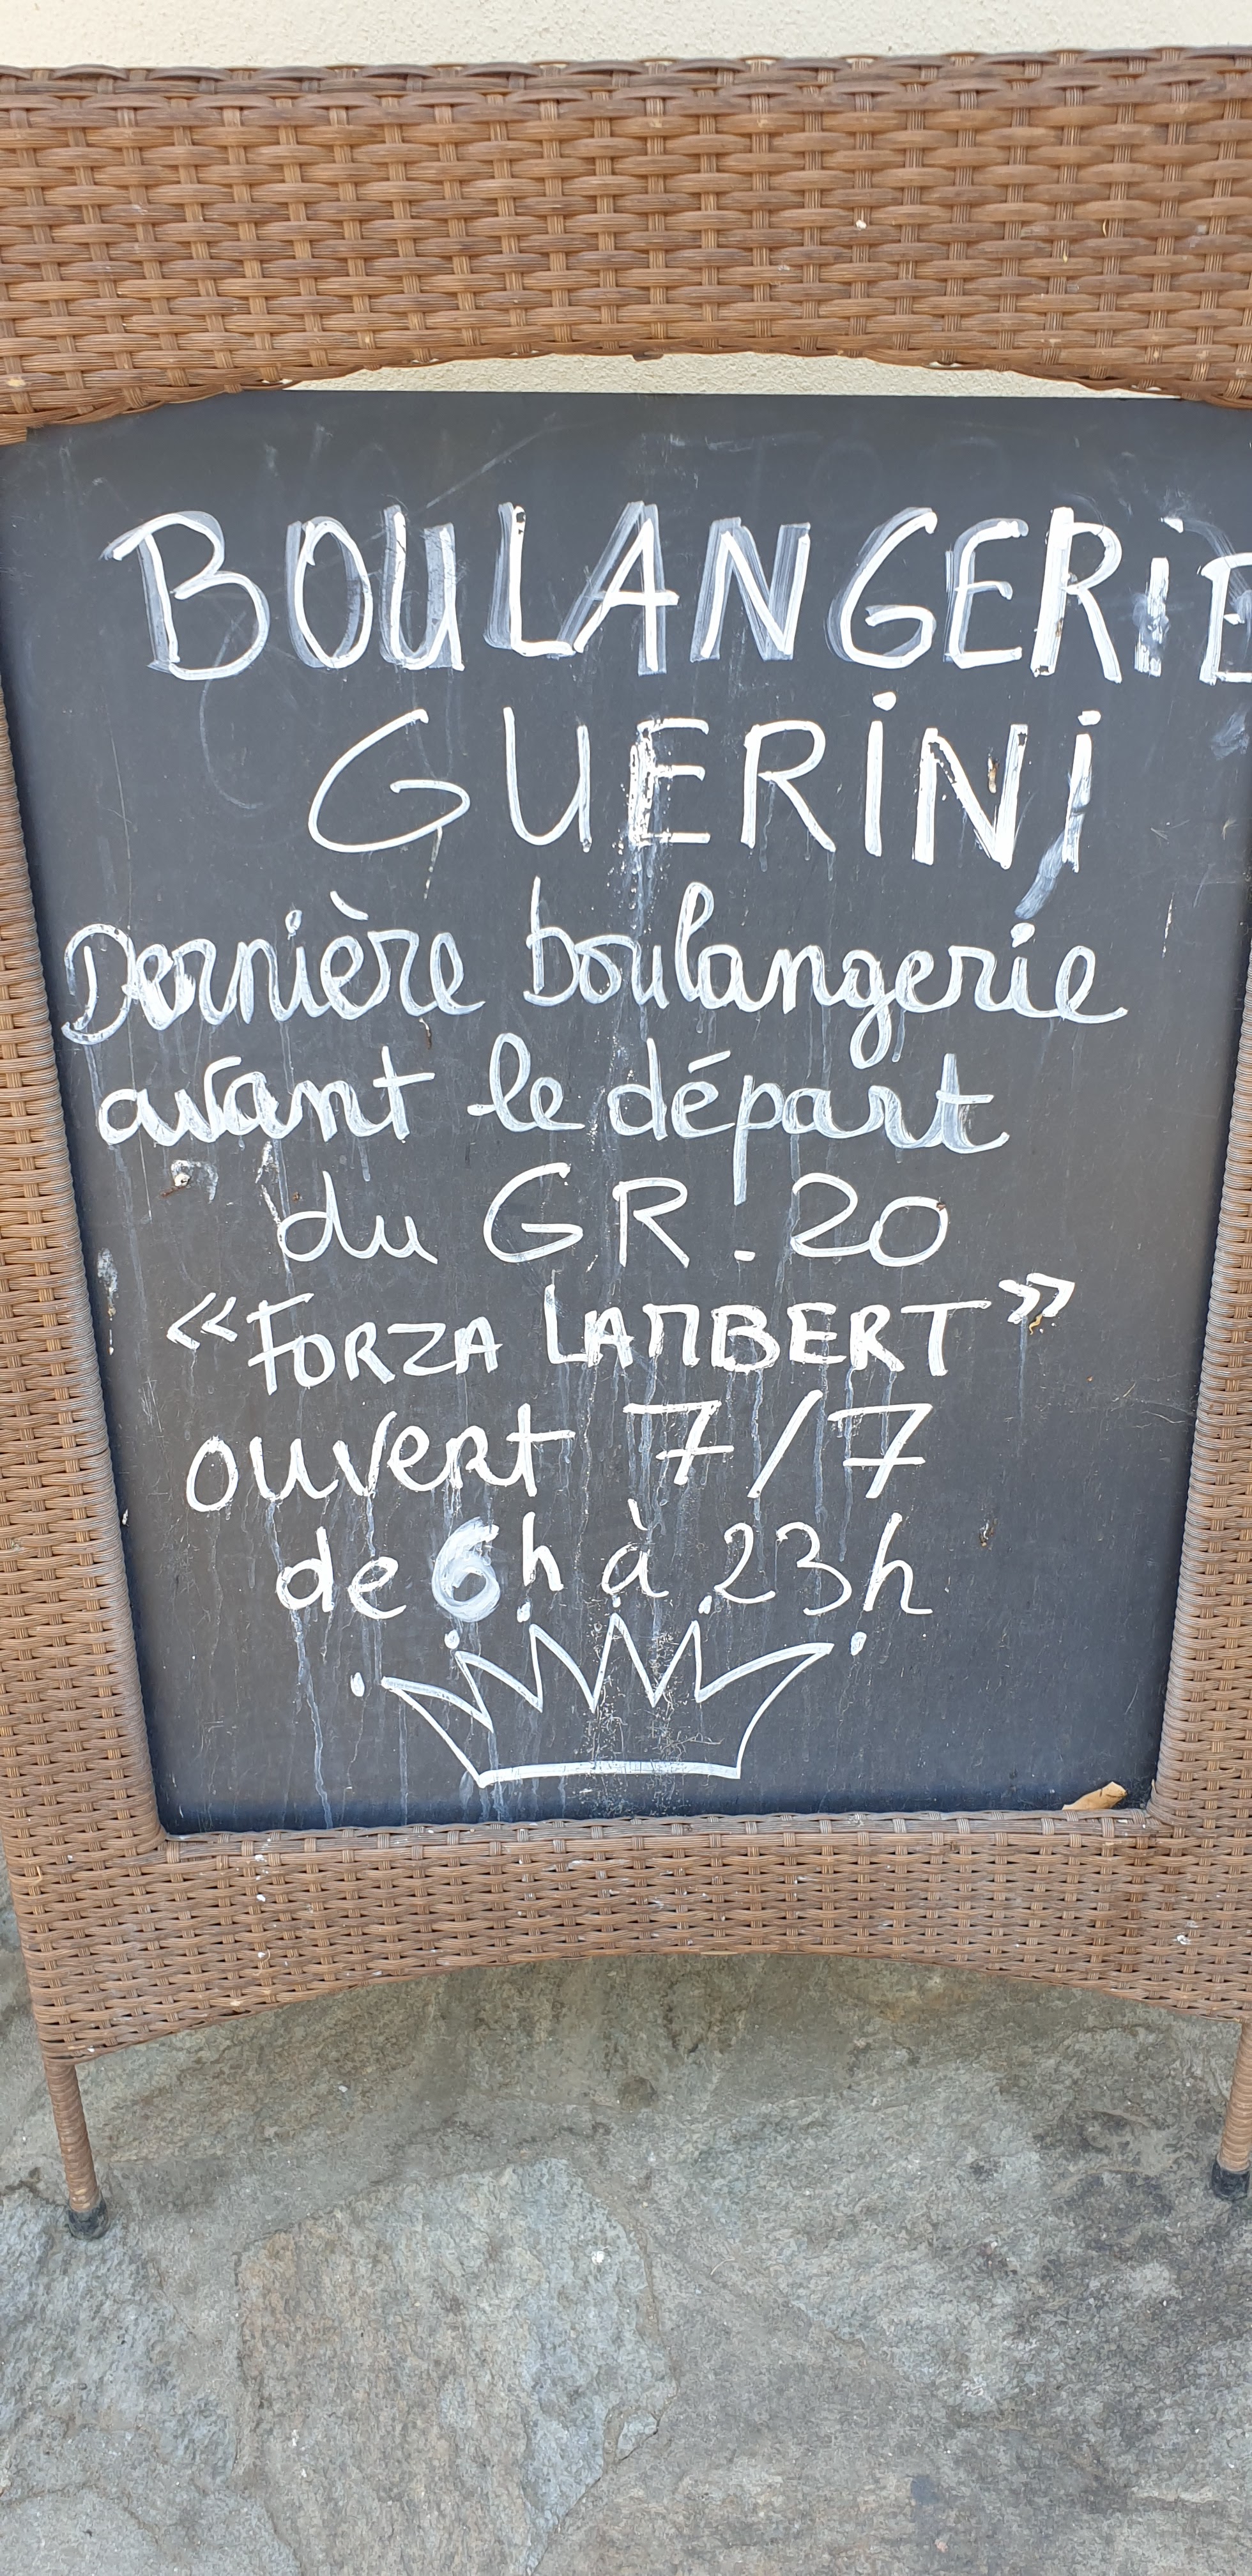 BOULANGERIE
GUERINI
Dernière boulangerie
avant le départ
du GR.20
«FORZA LAMBERT»
ouvert 7/7
de 6h à 23h